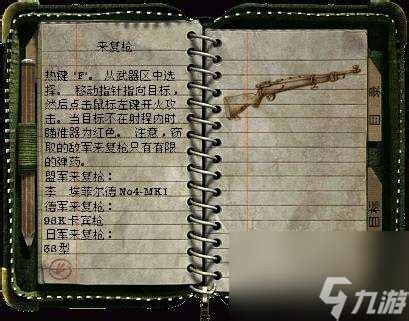 来复枪
热键 'F'。从武器区中选
择。 移动指针指向目标,
然后点击鼠标左键开火攻
击。当目标不在射程内时
瞄准器为红色。 注意,窃
取的敌军来复枪只有有限
的弹药。
盟军来复枪:
李 埃菲尔德 No4-MK1
德军来复枪:
98K卡宾枪
日军来复枪:
38型
目录
目标
九游